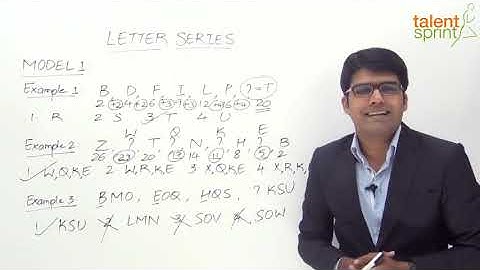 talent
sprint
LETTER SERIES
MODEL 1
Example 1 B, D, F, I, L, P, ? = T
2 +2 4 +2 6 +3 9 +3 12 +4 16 +4 20
1 R 2 S 3 T 4 U
W Q K E
Example 2 Z, ?, T, ?, N, ?, H, ?, B
26, 23, 20, 17, 14, 11, 8, 5, 2
1 W,Q,K,E 2 W,R,K,E 3 X,Q,K,E 4 X,R,K,
Example 3 BMO, EOQ, HQS, ? KSU
1 KSU 2 LMN 3 SOV 4 SOW